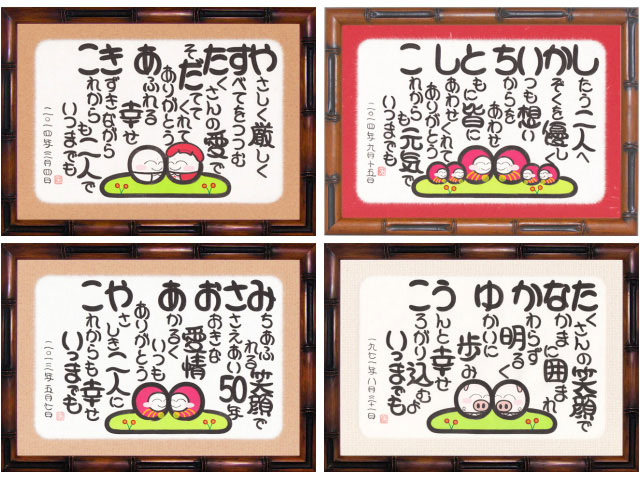 やさしく厳しく
すべてをつつむ
たくさんの愛で
そだててくれて
ありがとう
あふれる幸せ
きずきながら
これからも二人で
いつまでも
二〇一四年三月四日
したう二人へ
かぞくを優しく
いつも想い
ちからをあわせ
ともに皆に
しあわせくれて
ありがとう
これからも元気で
いつまでも
二〇一四年九月十五日
みちあふれる笑顔で
ささえあい50年
おおきな愛情
あかるくいつも
ありがとう
やさしき二人に
これからも幸せ
いつまでも
二〇一三年五月七日
たくさんの笑顔で
なかまに囲まれ
かわらず明るく
ゆかいに歩み
うんと幸せ
ころがり込むよ
いつまでも
一九七一年八月三十一日